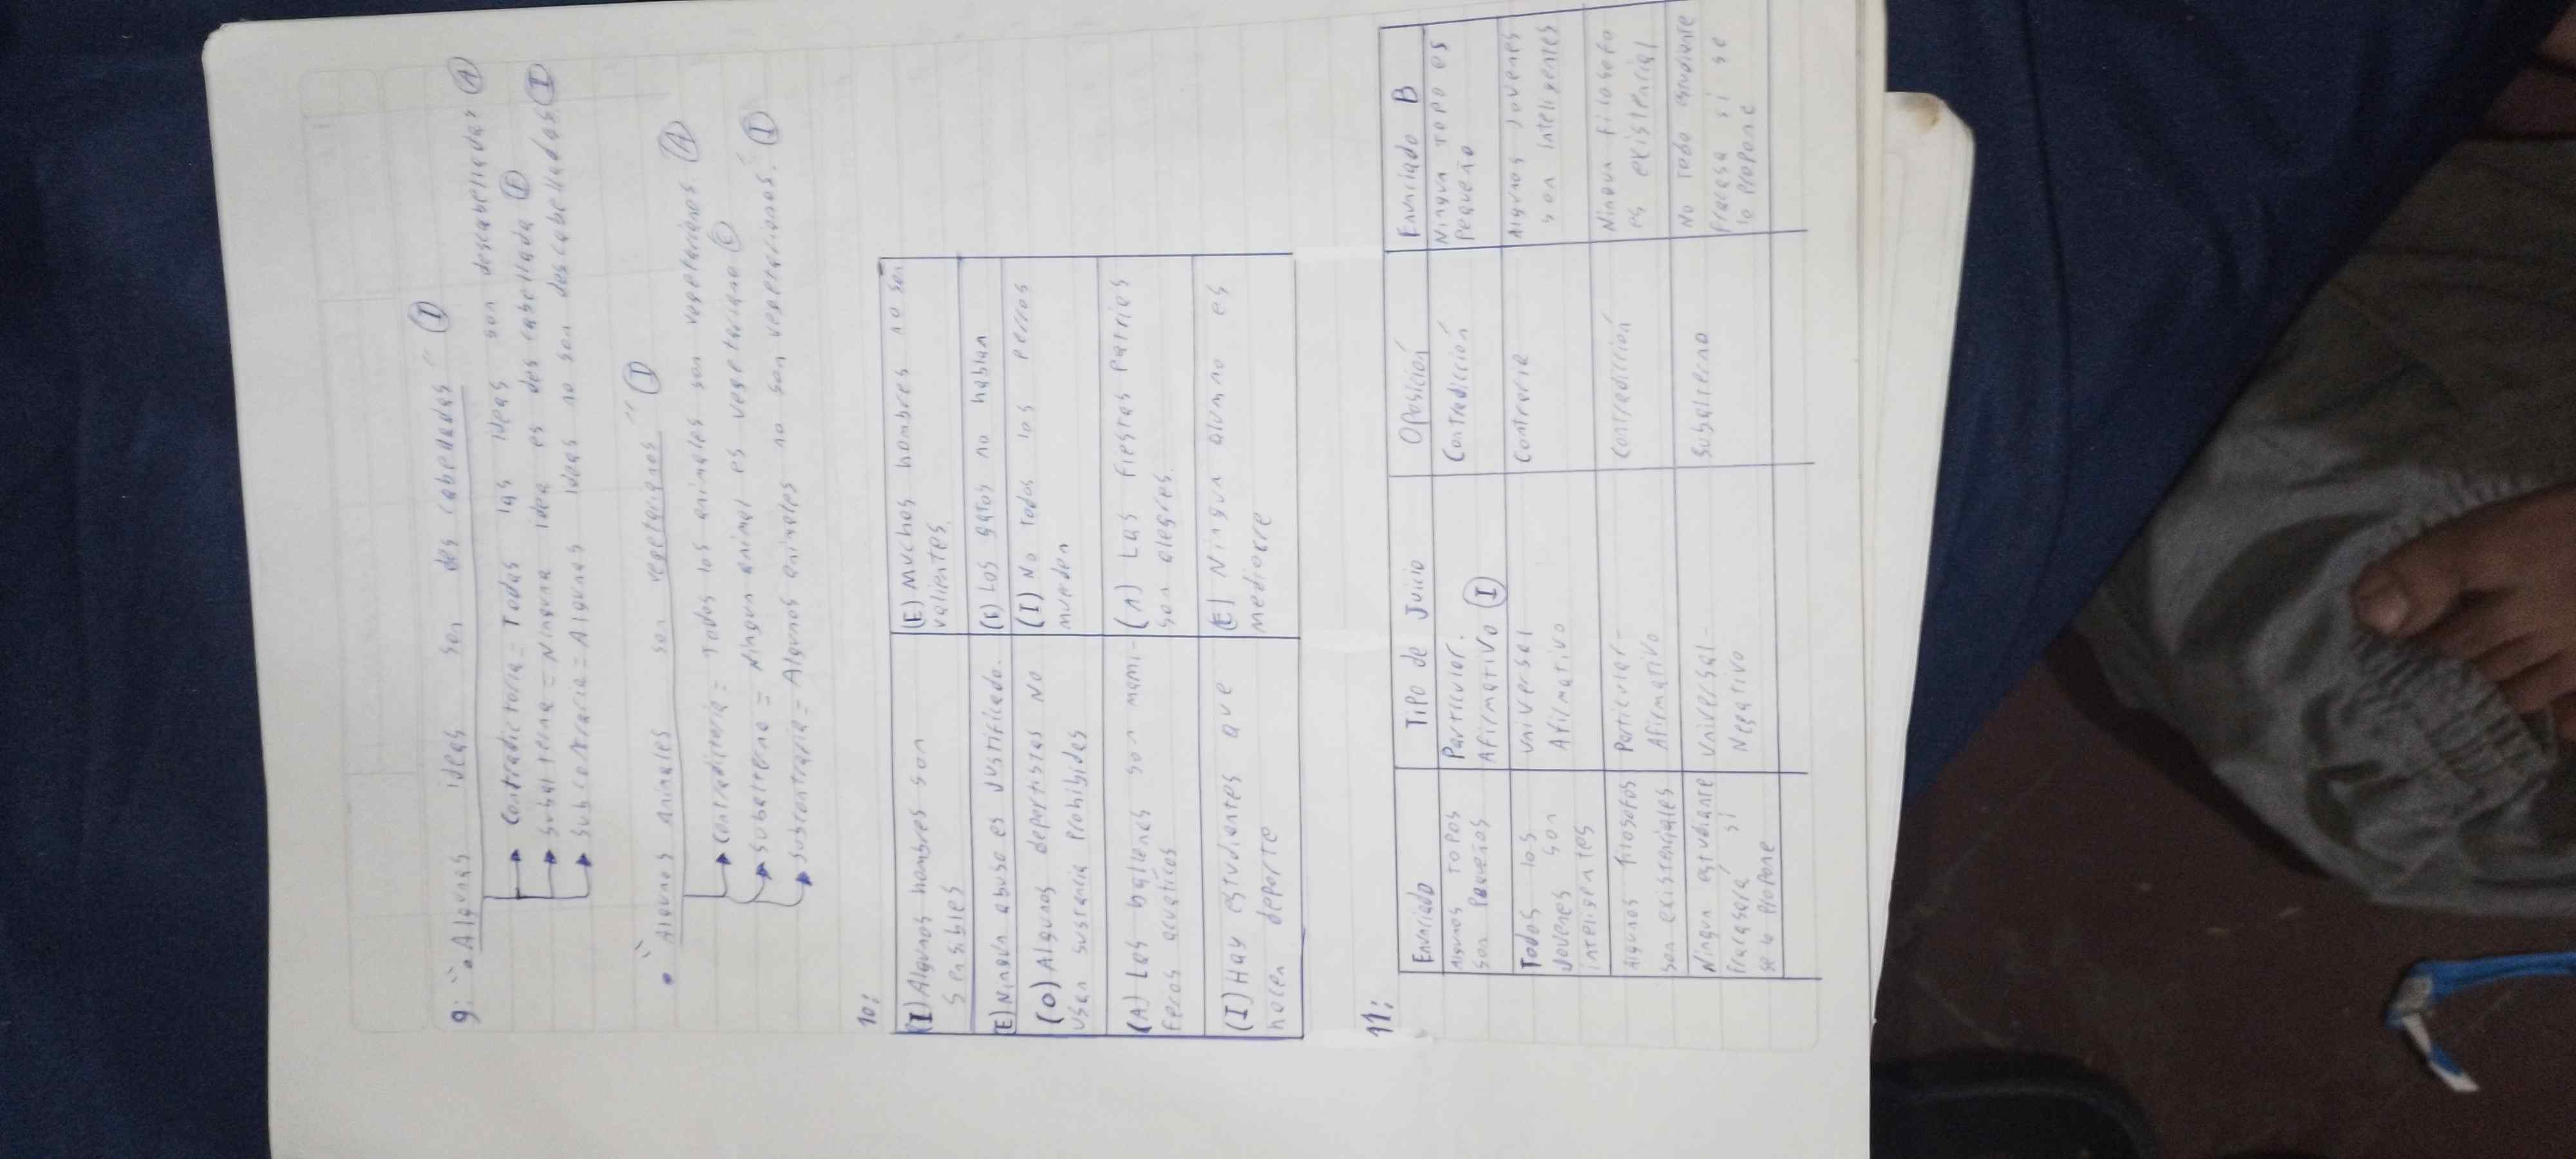 9: "• Algunas ideas son des cabelladas" (I)
Contradictoria = Todas las ideas son descabelladas (A)
Subalterna = Ninguna idea es des cabellada (E)
Subcontraria = Algunas ideas no son descabelladas (I)
• "Algunos animales son vegetarianos" (I)
Contradictoria = Todos los animales son vegetarianos. (A)
Subalterna = Ningun animal es vegetariano (E)
Subcontraria = Algunos animales no son vegetarianos. (I)
10:
(I) Algunos hombres son
sensibles
(E) Muchos hombres no son
valientes.
(E) Ningún abuso es Justificado.
(E) Los gatos no hablan
(O) Algunos deportistas No
usan sustancia Prohibidas
(I) No todos los perros
mueden
(A) Las ballenas son mami-
feros acuaticos
(A) Las fiestas patrias
son alegres.
(I) Hay estudiantes que
hacen deporte
(E) Ningun alumno es
mediocre
11:
Enunciado
Tipo de Juicio
Oposición
Enunciado B
Algunos topos
son Pequeños
Particular.
Afirmativo (I)
Contradicción
Ningun topo es
Pequeño
Todos los
Jovenes son
inteligentes
Universal
Afirmativo
Contraria
Algunos Jovenes
son inteligentes
Algunos filosofos
son existenciales
Particular-
Afirmativo
Contradicción
Ningun filosofo
es existencial
Ningun estudiante
fracasará si
se lo propone
Universal-
Negativo
Subalterno
No todo estudiante
fracasa si se
lo propone